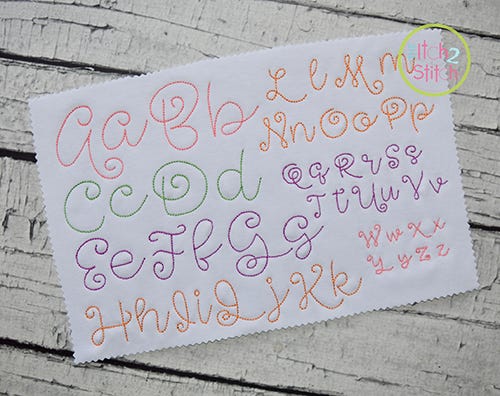 Itch2
Stitch
AaBb
CcDd
EeFfGg
HhIiJjKk
LlMm
NnOoPp
QqRrSs
TtUuVv
WwXx
YyZz